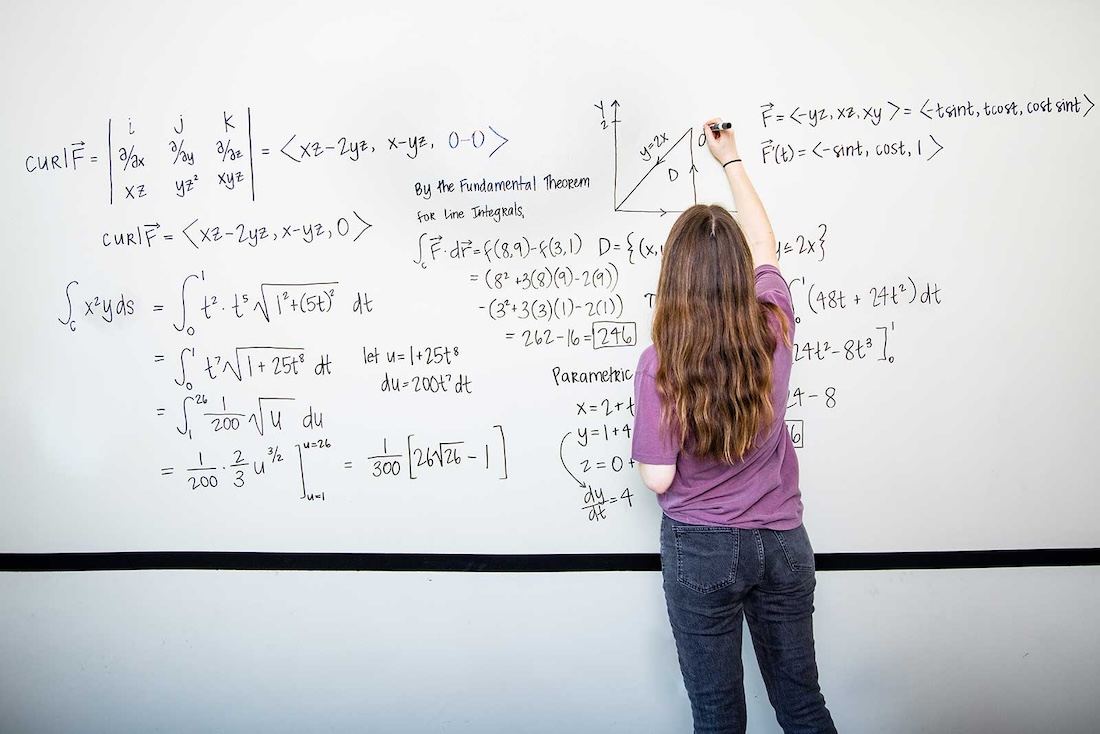 curl F⃗ = | i j k |
| ∂/∂x ∂/∂y ∂/∂z | = ⟨xz-2yz, x-yz, 0-0⟩
| xz yz² xyz |
curl F⃗ = ⟨xz-2yz, x-yz, 0⟩
∫_c x²y ds = ∫₀¹ t² · t⁵ √(1²+(5t)²) dt
= ∫₀¹ t⁷ √(1+25t⁸) dt
let u = 1+25t⁸
du = 200t⁷dt
= ∫₁²⁶ 1/200 √u du
= 1/200 · 2/3 u^(3/2) ]_(u=1)^(u=26) = 1/300 [26√26 - 1]
By the Fundamental Theorem
for Line Integrals,
∫_c F⃗ · dr⃗ = f(8,9) - f(3,1)
= (8² + 3(8)(9) - 2(9))
-(3² + 3(3)(1) - 2(1))
= 262 - 16 = 246
Parametric
x = 2 + t
y = 1 + 4
z = 0 +
dy/dt = 4
y
2
y=2x
D
D = {(x, y ≤ 2x}
∫₀¹ (48t + 24t²) dt
24t² - 8t³ ]₀¹
24 - 8
6
F⃗ = ⟨-yz, xz, xy⟩ = ⟨-tsint, tcost, cost sint⟩
F⃗'(t) = ⟨-sint, cost, 1⟩